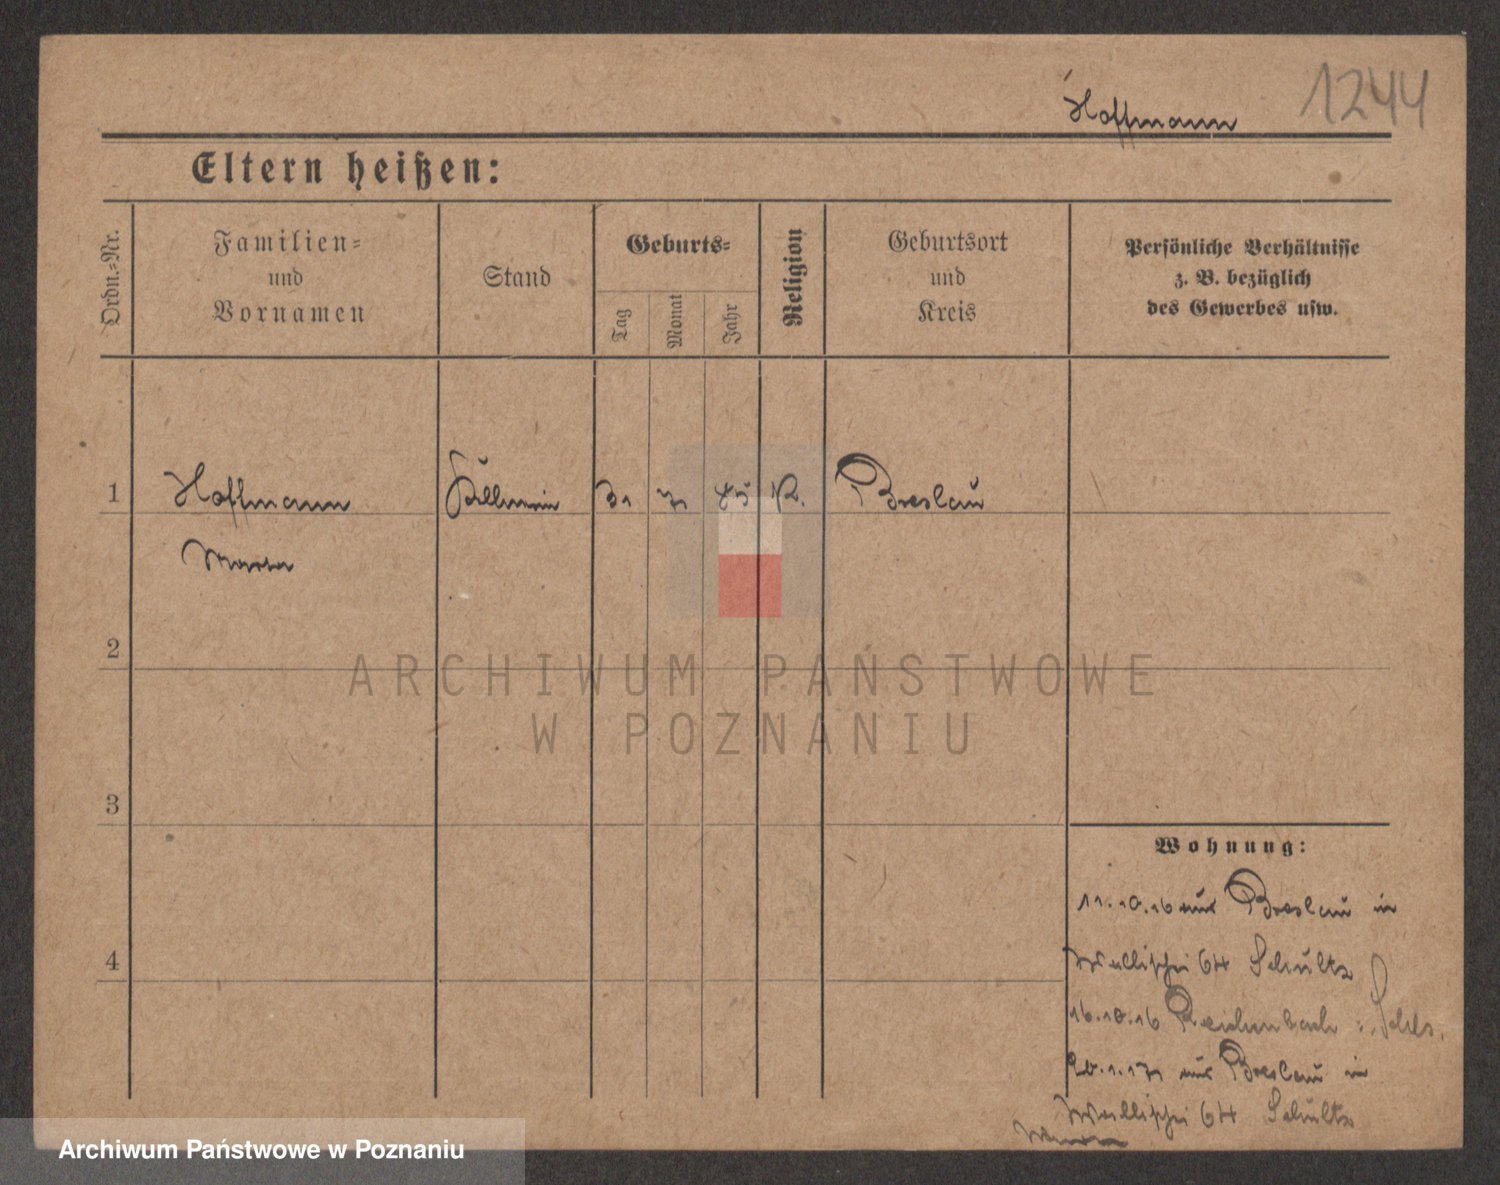 Hoffmann
1244
Eltern heißen:
Ordn.-Nr.
Familien-
und
Vornamen
Stand
Geburts-
Tag
Monat
Jahr
Religion
Geburtsort
und
Kreis
Persönliche Verhältnisse
z. B. bezüglich
des Gewerbes usw.
1 Hoffmann Kellnerin 31 7 85 K. Breslau
Marta
2
3
4
Wohnung:
11.10.16 aus Breslau in
Wallischei 64 Schultz
16.10.16 Reichenbach i. Schls.
26.1.17 aus Breslau in
Wallischei 64 Schultz
ARCHIWUM PAŃSTWOWE
W POZNANIU
Archiwum Państwowe w Poznaniu